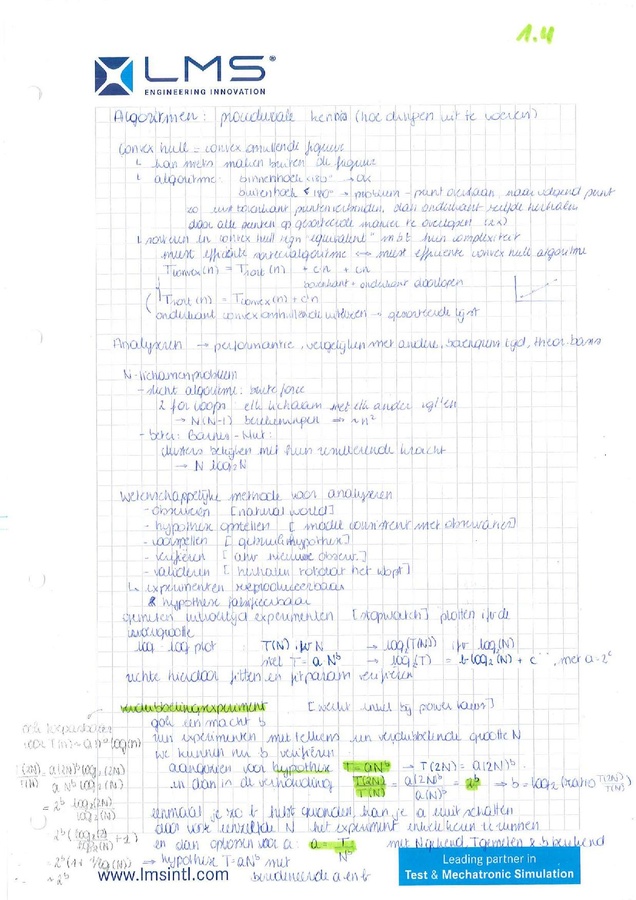 1.4
LMS
ENGINEERING INNOVATION
Algoritmen: procedurale kennis (hoe dingen uit te voeren)
Convex hull = convex omhullende figuur
kan niets maken buiten de figuur
algoritme: binnenhoek <180° → OK
buitenhoek <180° → probleem - punt overslaan, naar volgend punt
zo eerst bovenkant punten verbonden, dan onderkant zelfde herhalen
door alle punten op gesorteerde manier te overlopen (2x)
sorteren en convex hull zijn "equivalent" mbt hun complexiteit
meest efficiënte sorteeralgoritme ↔ meest efficiënte convex hull algoritme
Tconvex(n) = Tsort(n) + cn + cn
bovenkant + onderkant doorlopen
Tsort(n) = Tconvex(n) + cn
onderkant convex omhullende uitlezen → gesorteerde lijst
Analyseren → performantie, vergelijken met andere, begrijpen tijd, theor. basis
N-lichamenprobleem
- slecht algoritme: brute force
2 for loops elk lichaam met elk ander vgl'en
→ N(N-1) berekeningen ⇒ ~n²
- beter: Barnes-Hut:
clusters bekijken met hun resulterende kracht
→ N log₂N
Wetenschappelijke methode voor analyseren
- observeren [natural world]
- hypothese opstellen [model consistent met observaties]
- voorspellen [gebruik hypothese]
- verifiëren [dmv nieuwe observ.]
- valideren [herhalen totdat het klopt]
↳ experimenten reproduceerbaar
& hypothese falsifieerbaar
gemeten uitvoertijd experimenten [stopwatch] plotten ifv de
invoergrootte
log-log plot: T(N) ifv N → log₂(T(N)) ifv log₂(N)
met T = a N^b → log₂(T) = b log₂(N) + c , met a=2^c
rechte hierdoor fitten en fitparam verifiëren
verdubbelingsexperiment [werkt enkel bij power laws]
gok een macht b
run experimenten met telkens een verdubbelende grootte N
we kunnen nu b verifiëren
aangezien voor hypothese T=aN^b → T(2N) = a(2N)^b
en dan in de verhouding T(2N)/T(N) = a(2N)^b/a(N)^b = 2^b ⇒ b = log₂(ratio T(2N)/T(N))
eenmaal je zo b hebt gevonden, kan je a uit schatten
door voor eenzelfde N het experiment enkele keren te runnen
en dan oplossen voor a: a = T/N^b met N gekend, T gemeten & b berekend
→ hypothese T=aN^b met
beredeneerde a en b
ook toepasbaar
voor T(n) ~ a n^b log(n)
T(2N)/T(N) = a(2N)^b log₂(2N)/a N^b log₂(N)
= 2^b log₂(2N)/log₂(N)
~ 2^b
www.lmsintl.com
Leading partner in
Test & Mechatronic Simulation